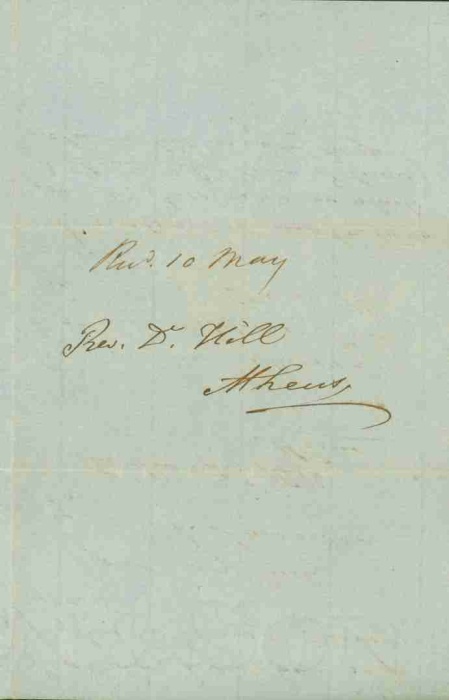 Recd. 10 May
Rev. Dr. Hill
Athens,